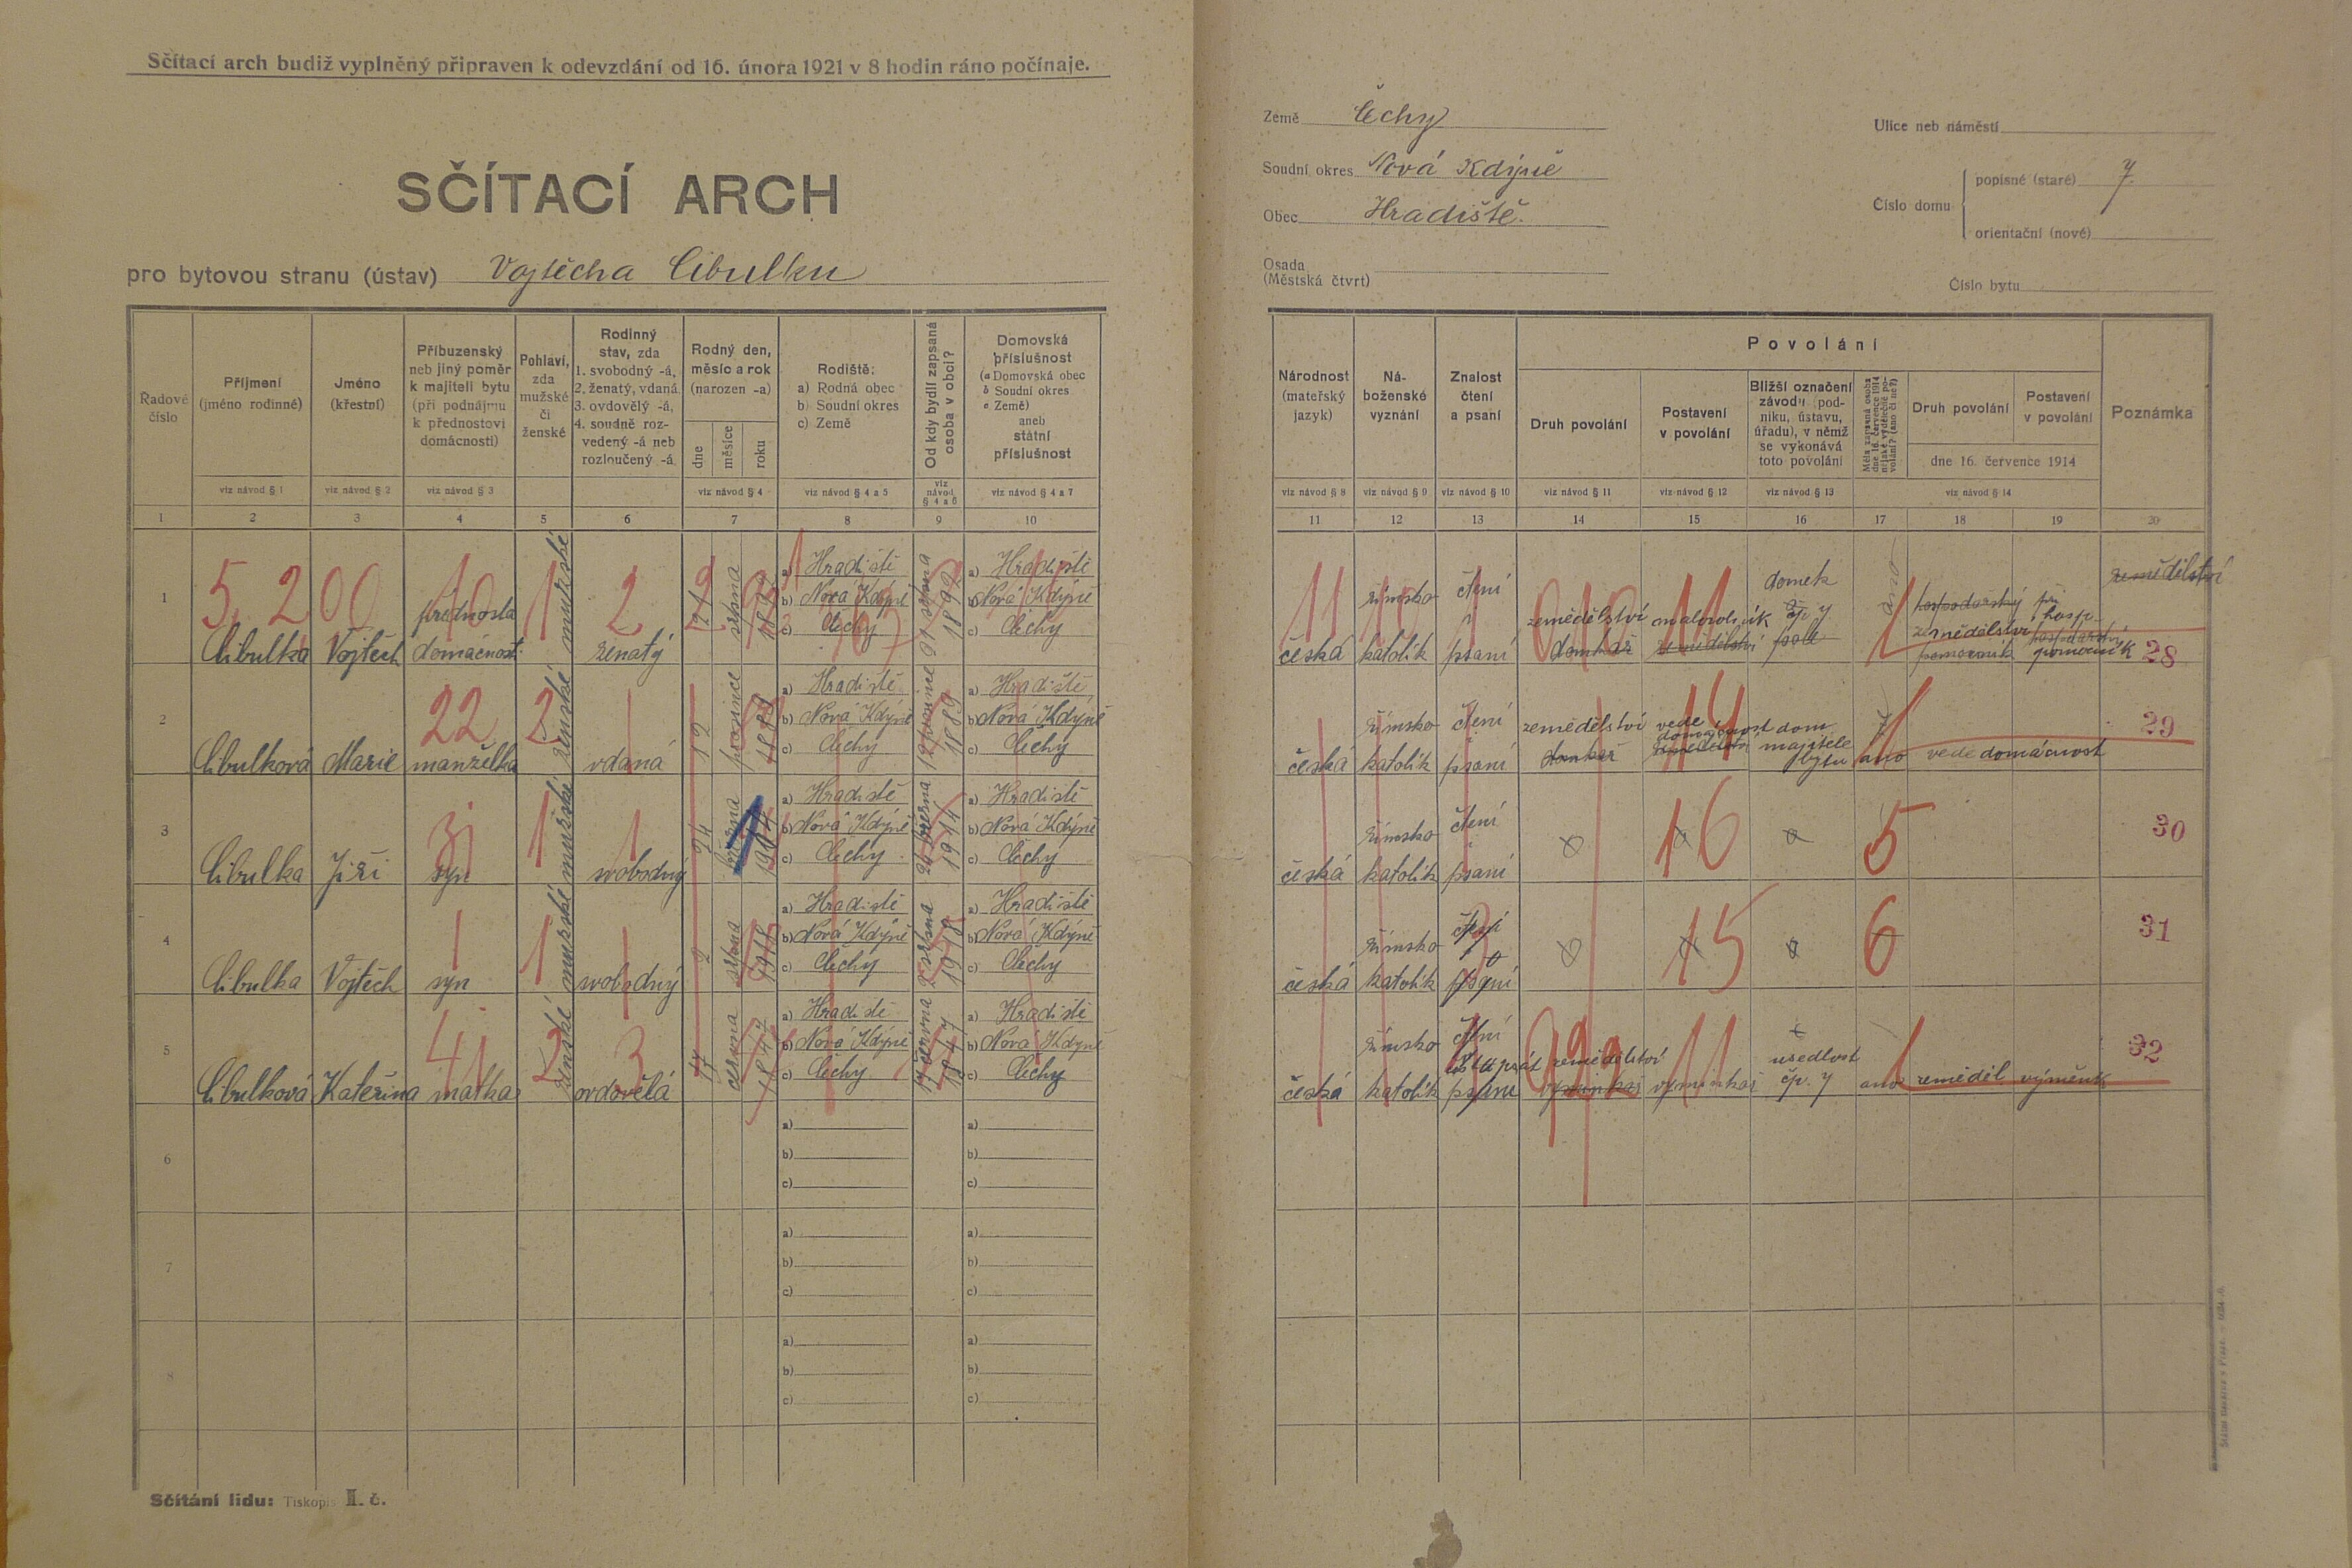 Sčítací arch budiž vyplněný připraven k odevzdání od 16. února 1921 v 8 hodin ráno počínaje.
SČÍTACÍ ARCH
pro bytovou stranu (ústav) Vojtěcha Cibulku
Země Čechy
Soudní okres Nová Kdýně
Obec Hradiště.
Osada
(Městská čtvrt)
Ulice neb náměstí
Číslo domu
popisné (staré) 7.
orientační (nové)
Číslo bytu
Řadové číslo
Příjmení (jméno rodinné)
Jméno (křestní)
Příbuzenský neb jiný poměr k majiteli bytu (při podnájmu k přednostovi domácnosti)
Pohlaví, zda mužské či ženské
Rodinný stav, zda 1. svobodný -á, 2. ženatý, vdaná 3. ovdovělý -á, 4. soudně rozvedený -á neb rozloučený -á
Rodný den, měsíc a rok (narozen -a)
dne měsíce roku
Rodiště: a) Rodná obec b) Soudní okres c) Země
Od kdy bydlí zapsaná osoba v obci?
Domovská příslušnost (a Domovská obec b Soudní okres c Země) aneb státní příslušnost
viz návod § 1 viz návod § 2 viz návod § 3 viz návod § 4 viz návod § 4 a 5 viz návod § 4 a 6 viz návod § 4 a 7
1 2 3 4 5 6 7 8 9 10
Národnost (mateřský jazyk)
Náboženské vyznání
Znalost čtení a psaní
Povolání
Druh povolání
Postavení v povolání
Bližší označení závodu podniku, ústavu, úřadu), v němž se vykonává toto povolání
Měla zapsaná osoba dne 16. července 1914 nějaké výdělečné povolání? (Ano či ne?)
Druh povolání
Postavení v povolání
dne 16. července 1914
Poznámka
viz návod § 8 viz návod § 9 viz návod § 10 viz návod § 11 viz návod § 12 viz návod § 13 viz návod § 14
11 12 13 14 15 16 17 18 19 20
1 Cibulka Vojtěch přednosta domácnosti mužské ženatý 21 srpna
a) Hradiště
b) Nová Kdýně
c) Čechy
a) Hradiště
b) Nová Kdýně
c) Čechy
5 200 10 1 2
česká římsko katolík čtení i psaní zemědělství domkář malorolník zemědělství domek čp. 7 pole ano hospodářský zemědělství při hosp. pomocník zemědělství 28
11 10 010 11
2 Cibulková Marie manželka ženské vdaná 12 prosince 1889
a) Hradiště
b) Nová Kdýně
c) Čechy
12 prosince 1889
a) Hradiště
b) Nová Kdýně
c) Čechy
22 2
česká římsko katolík čtení i psaní zemědělství domkář vede domácnost zemědělství dom majitele bytu ano vede domácnost 29
14
3 Cibulka Jiří syn mužské svobodný 24 března 1914
a) Hradiště
b) Nová Kdýně
c) Čechy
24 března 1914
a) Hradiště
b) Nová Kdýně
c) Čechy
česká římsko katolík čtení i psaní 16 5 30
4 Cibulka Vojtěch syn mužské svobodný 2 srpna 1918
a) Hradiště
b) Nová Kdýně
c) Čechy
2 srpna 1918
a) Hradiště
b) Nová Kdýně
c) Čechy
česká římsko katolík čtení psaní 15 6 31
5 Cibulková Kateřina matka ženské ovdovělá 17 června 1847
a) Hradiště
b) Nová Kdýně
c) Čechy
17 června 1847
a) Hradiště
b) Nová Kdýně
c) Čechy
41 2 3
česká římsko katolík čtení psaní zemědělství výminkář výminkář usedlost čp. 7 ano zeměděl. výměnk 32
11
6
a)
b)
c)
a)
b)
c)
7
a)
b)
c)
a)
b)
c)
8
a)
b)
c)
a)
b)
c)
Sčítání lidu: Tiskopis II. č.